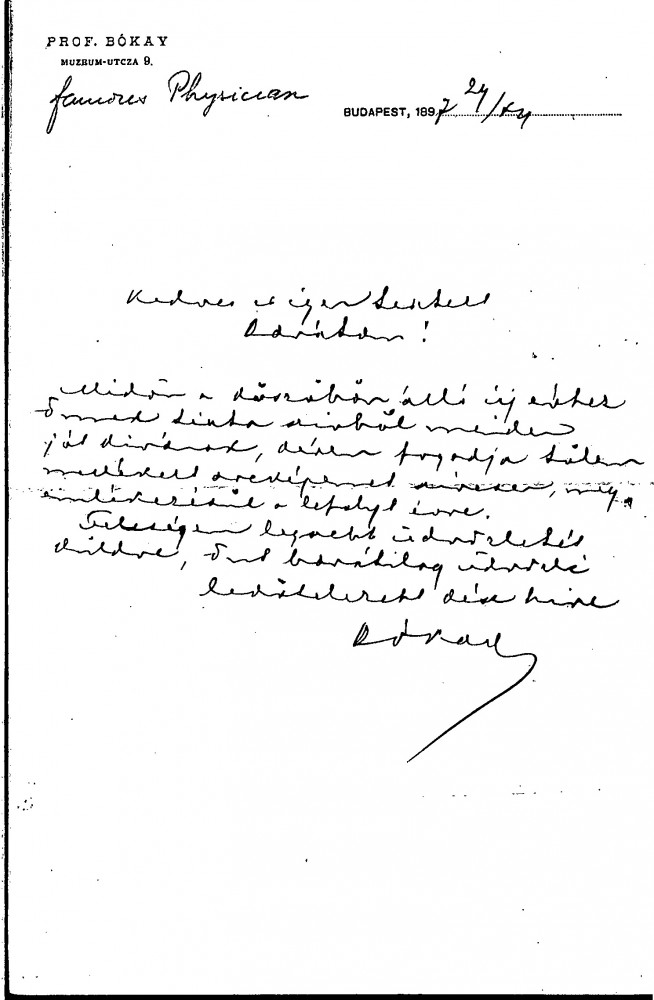 PROF. BÓKAY
MUZEUM-UTCZA 9.
famous Physician
BUDAPEST, 1897 24/XII
Kedves és igen tisztelt
Barátom!
Midőn a küszöbön álló új évhez
Önnek tiszta szivből minden
jót kivánok, kérem fogadja tőlem
mellékelt arcképemet szivesen, meg
emlékezésül a lefolyt évre.
Feleségem legszebb üdvözletét
küldve, Önt barátilag üdvözli
lekötelezett kész hive
Bókay